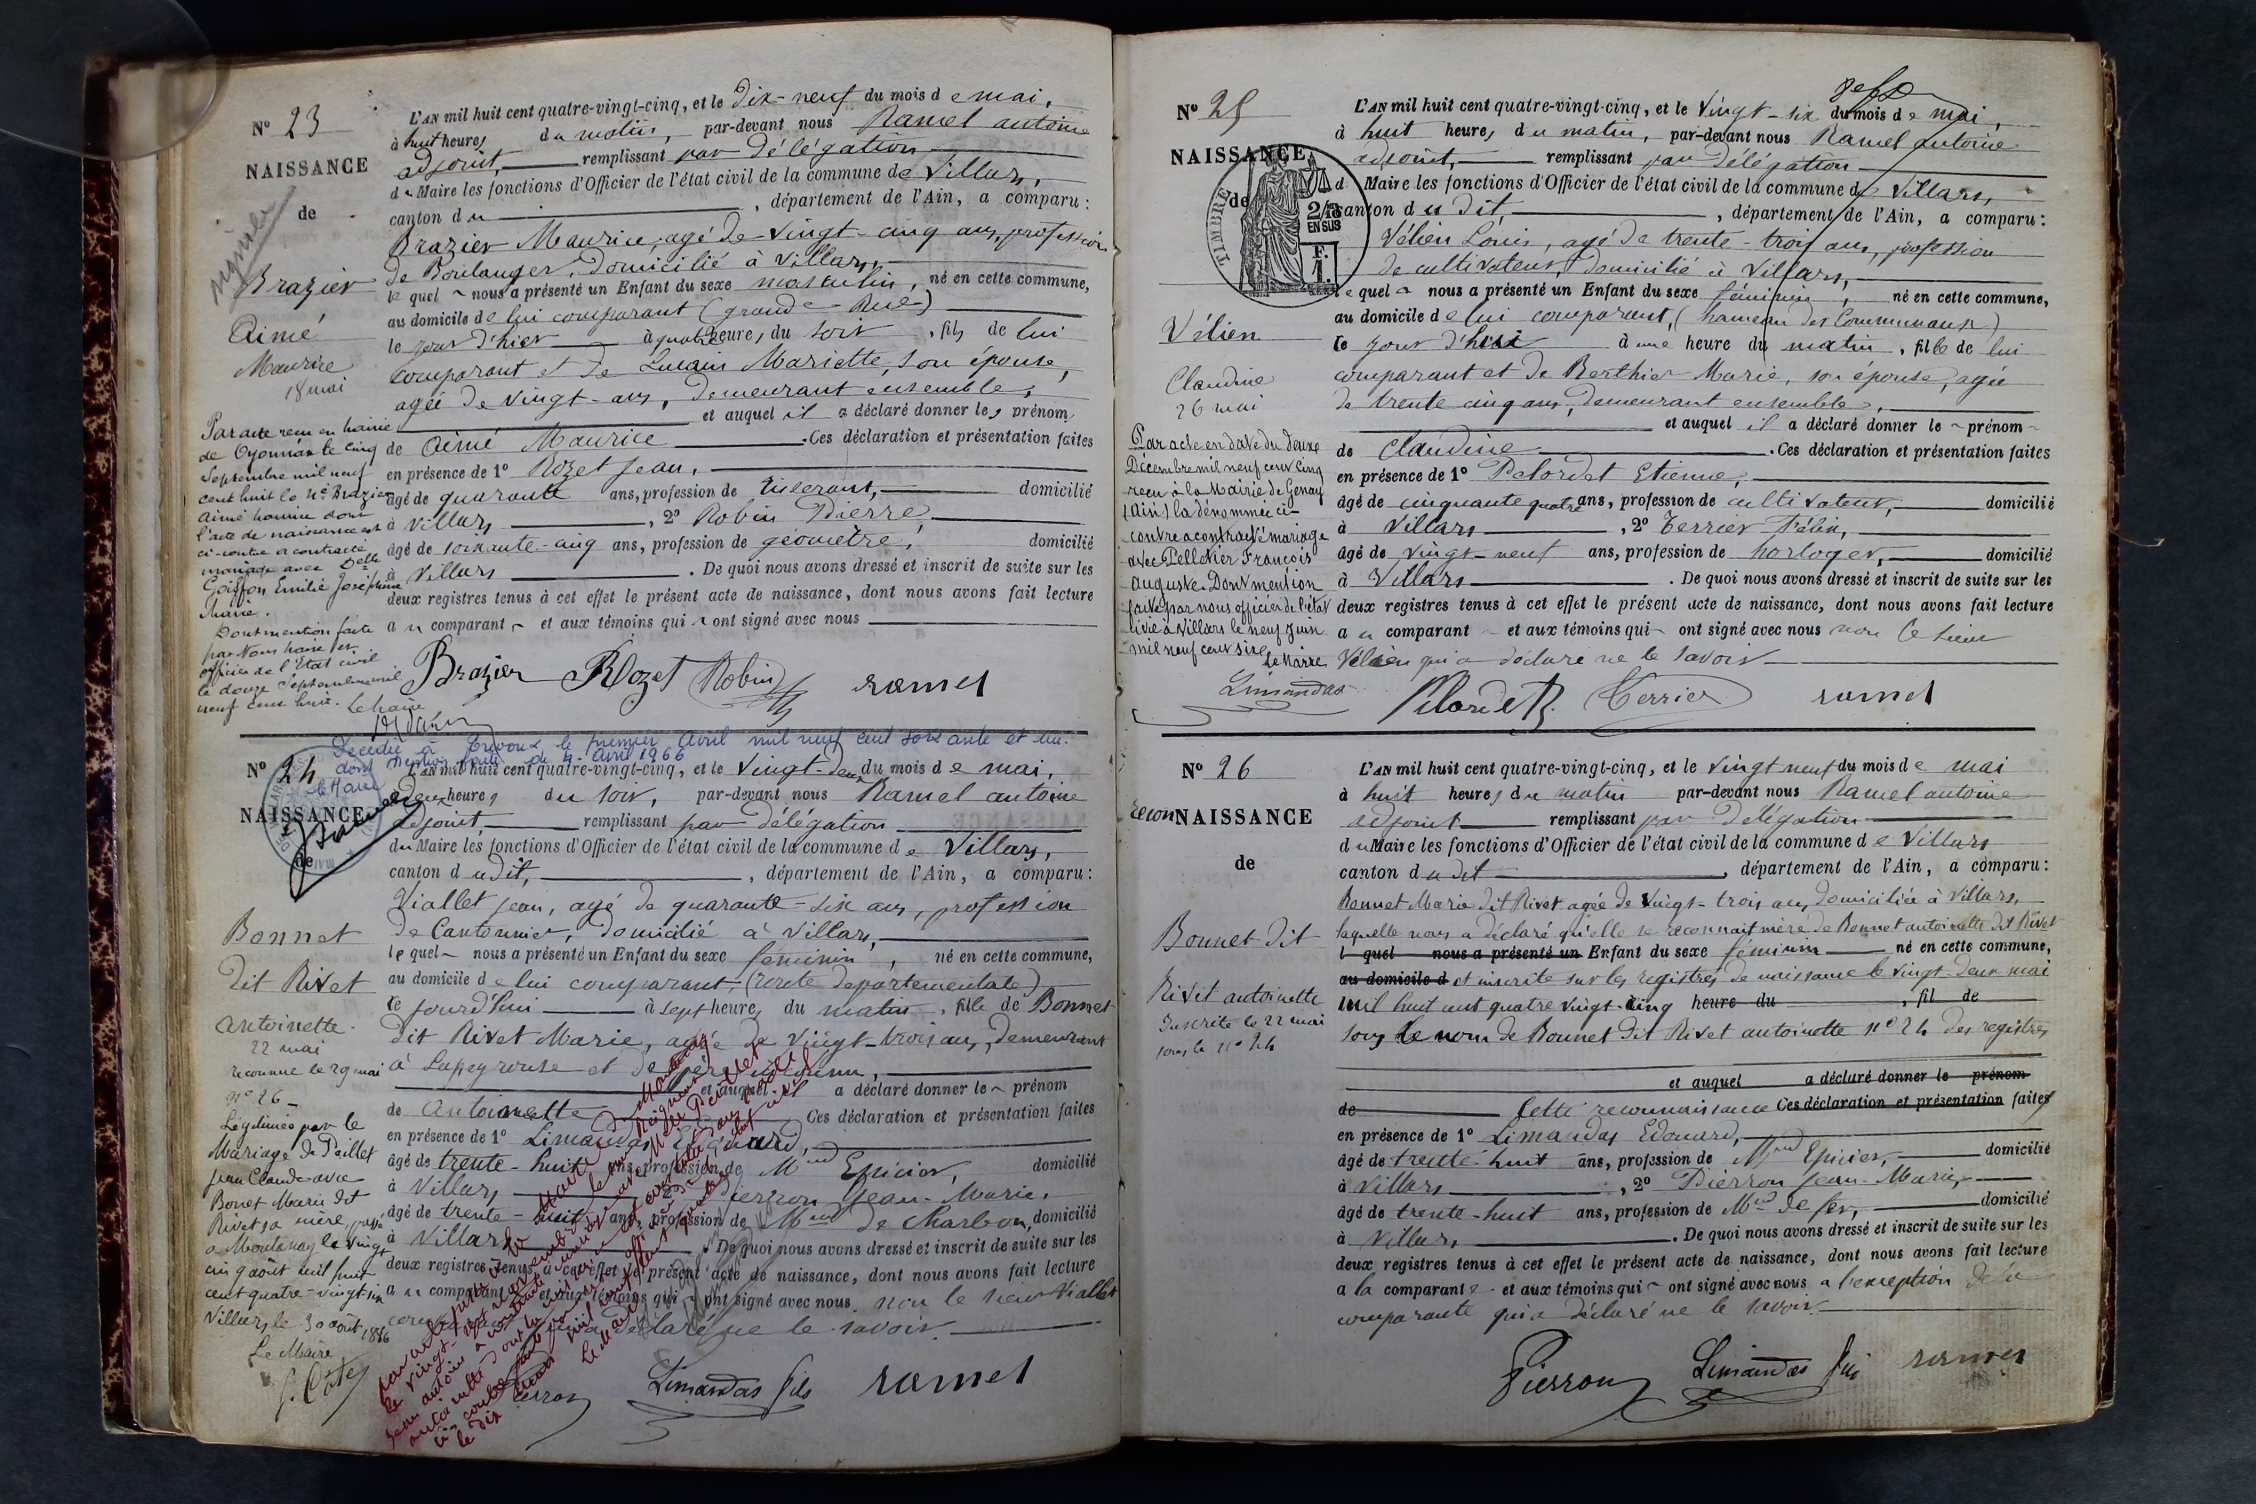 N° 23
NAISSANCE
de
Brazier
Aimé
Maurice
18 mai
Par acte reçu en mairie
de Oyonnax le cinq
Septembre mil neuf
cent huit le né Brazier
Aimé Maurice dont
l'acte de naissance est
ci-contre a contracté
mariage avec Delle
Goiffon Emilie Joséphine
Marie.
Dont mention faite
par Nous Maire et
officier de l'Etat civil
le douze Septembre mil
neuf cent huit. Le Maire
L'AN mil huit cent quatre-vingt-cinq, et le Dix-neuf du mois de mai,
à huit heures du matin, par-devant nous Ramel antoine
adjoint, remplissant par délégation
du Maire les fonctions d'Officier de l'état civil de la commune de Villars,
canton du , département de l'Ain, a comparu:
Brazier Maurice, agé de vingt-cinq ans, profession
de Boulanger, domicilié à Villars,
lequel nous a présenté un Enfant du sexe masculin, né en cette commune,
au domicile de lui comparant (grande Rue)
le jour d'hier à quatre heures du soir, fils de lui
comparant et de Mariette, son épouse,
agée de vingt-ans, demeurant ensemble,
et auquel il a déclaré donner les prénoms
de Aimé Maurice . Ces déclaration et présentation faites
en présence de 1° Rozet Jean,
âgé de quarante ans, profession de tisserant, domicilié
à Villars , 2° Robin Pierre,
âgé de soixante-cinq ans, profession de géomètre, domicilié
à Villars . De quoi nous avons dressé et inscrit de suite sur les
deux registres tenus à cet effet le présent acte de naissance, dont nous avons fait lecture
au comparant et aux témoins qui ont signé avec nous
Brazier Rozet Robin ramel
Décédée à Trévoux le premier Avril mil neuf cent soixante et un.
dont mention faite le 4 Avril 1966
Le Maire
N° 24
NAISSANCE
de
Bonnet
dit Rivet
antoinette
22 mai
reconnue le 29 mai
n° 26
Légitimée par le
Mariage de Paillet
Jean Claude avec
Bonet Marie dit
Rivet sa mère, passé
à Montanay le vingt
cinq août mil huit
cent quatre-vingt six
Villars, le 30 août 1886
Le Maire
L'AN mil huit cent quatre-vingt-cinq, et le vingt-deux du mois de mai,
à deux heures du soir, par-devant nous Ramel antoine
adjoint, remplissant par délégation
du Maire les fonctions d'Officier de l'état civil de la commune de Villars,
canton dudit, , département de l'Ain, a comparu:
Viallet Jean, agé de quarante-six ans, profession
de Cantonnier, domicilié à Villars,
lequel nous a présenté un Enfant du sexe féminin, né en cette commune,
au domicile de lui comparant, (route departementale)
le jourd'hui à sept heures du matin, fille de Bonnet
dit Rivet Marie, agée de vingt-trois ans, demeurant
à Lapeyrouse et de père inconnu,
et auquel il a déclaré donner le prénom
de Antoinette Ces déclaration et présentation faites
en présence de 1° Limandas Edouard,
âgé de trente-huit ans, profession de Mnd Epicier, domicilié
à Villars 2° Pierron Jean-Marie,
âgé de trente-huit ans, profession de Mnd de Charbon, domicilié
à Villars . De quoi nous avons dressé et inscrit de suite sur les
deux registres tenus à cet effet le présent acte de naissance, dont nous avons fait lecture
au comparant et aux témoins qui ont signé avec nous non le sieur Viallet
comparant qui a déclaré ne le savoir.
Pierron Limandas fils ramel
N° 25
NAISSANCE
de
TIMBRE
2/10
EN SUS
F.
1.
Vélien
Claudine
26 mai
Par acte en date du deux
Décembre mil neuf cent cinq
reçu à la Mairie de Genay
(Ain) la dénommée ci-
contre a contracté mariage
avec Pelletier François
Auguste. Dont mention
faite par nous officier de l'état
civil à Villars le neuf Juin
mil neuf cent six
Le Maire
Limandas
L'AN mil huit cent quatre-vingt-cinq, et le Vingt-six du mois de mai,
à huit heures du matin, par-devant nous Ramel antoine
adjoint, remplissant par délégation
d Maire les fonctions d'Officier de l'état civil de la commune de Villars,
canton du dit, , département de l'Ain, a comparu:
Vélien Louis, agé de trente-trois ans, profession
de cultivateur, domicilié à Villars,
lequel nous a présenté un Enfant du sexe féminin, né en cette commune,
au domicile de lui comparant, (hameau des Communaux)
le jour d'hui à une heure du matin, fille de lui
comparant et de Berthier Marie, son épouse, agée
de trente cinq ans, demeurant ensemble,
et auquel il a déclaré donner le prénom
de Claudine . Ces déclaration et présentation faites
en présence de 1° Pelordet Etienne,
âgé de cinquante quatre ans, profession de cultivateur, domicilié
à Villars , 2° Terrier Félix,
âgé de vingt-neuf ans, profession de horloger, domicilié
à Villars . De quoi nous avons dressé et inscrit de suite sur les
deux registres tenus à cet effet le présent acte de naissance, dont nous avons fait lecture
au comparant et aux témoins qui ont signé avec nous non le sieur
Vélien qui a déclaré ne le savoir
Pelordet Terrier ramel
N° 26
recon NAISSANCE
de
Bonnet dit
Rivet antoinette
Inscrite le 22 mai
sous le n° 24
L'AN mil huit cent quatre-vingt-cinq, et le vingt neuf du mois de mai
à huit heures du matin par-devant nous Ramel antoine
adjoint remplissant par délégation
du Maire les fonctions d'Officier de l'état civil de la commune de Villars
canton du dit , département de l'Ain, a comparu:
Bonnet Marie dit Rivet agée de vingt-trois ans, domiciliée à Villars,
laquelle nous a déclaré qu'elle se reconnait mère de Bonnet antoinette dit Rivet
l quel nous a présenté un Enfant du sexe féminin né en cette commune,
au domicile d et inscrite sur les registres de naissance le vingt deux mai
mil huit cent quatre vingt-cinq heure du , fil de
sous le nom de Bonnet dit Rivet antoinette n° 24 des registres
et auquel a déclaré donner le prénom
de Cette reconnaissance Ces déclaration et présentation faites
en présence de 1° Limandas Edouard,
âgé de trente-huit ans, profession de Mnd Epicier, domicilié
à Villars , 2° Pierron Jean-Marie,
âgé de trente-huit ans, profession de Mnd de fer, domicilié
à Villars . De quoi nous avons dressé et inscrit de suite sur les
deux registres tenus à cet effet le présent acte de naissance, dont nous avons fait lecture
a la comparante et aux témoins qui ont signé avec nous a l'exception de la
comparante qui a déclaré ne le savoir.
Pierron Limandas fils ramel